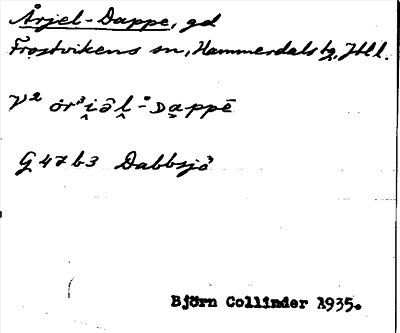 Årjel-Dappe, gd
Frostvikens sn, Hammerdals tg, Jtl l.
G 47 b3 Dabbsjö
Björn Collinder 1935.